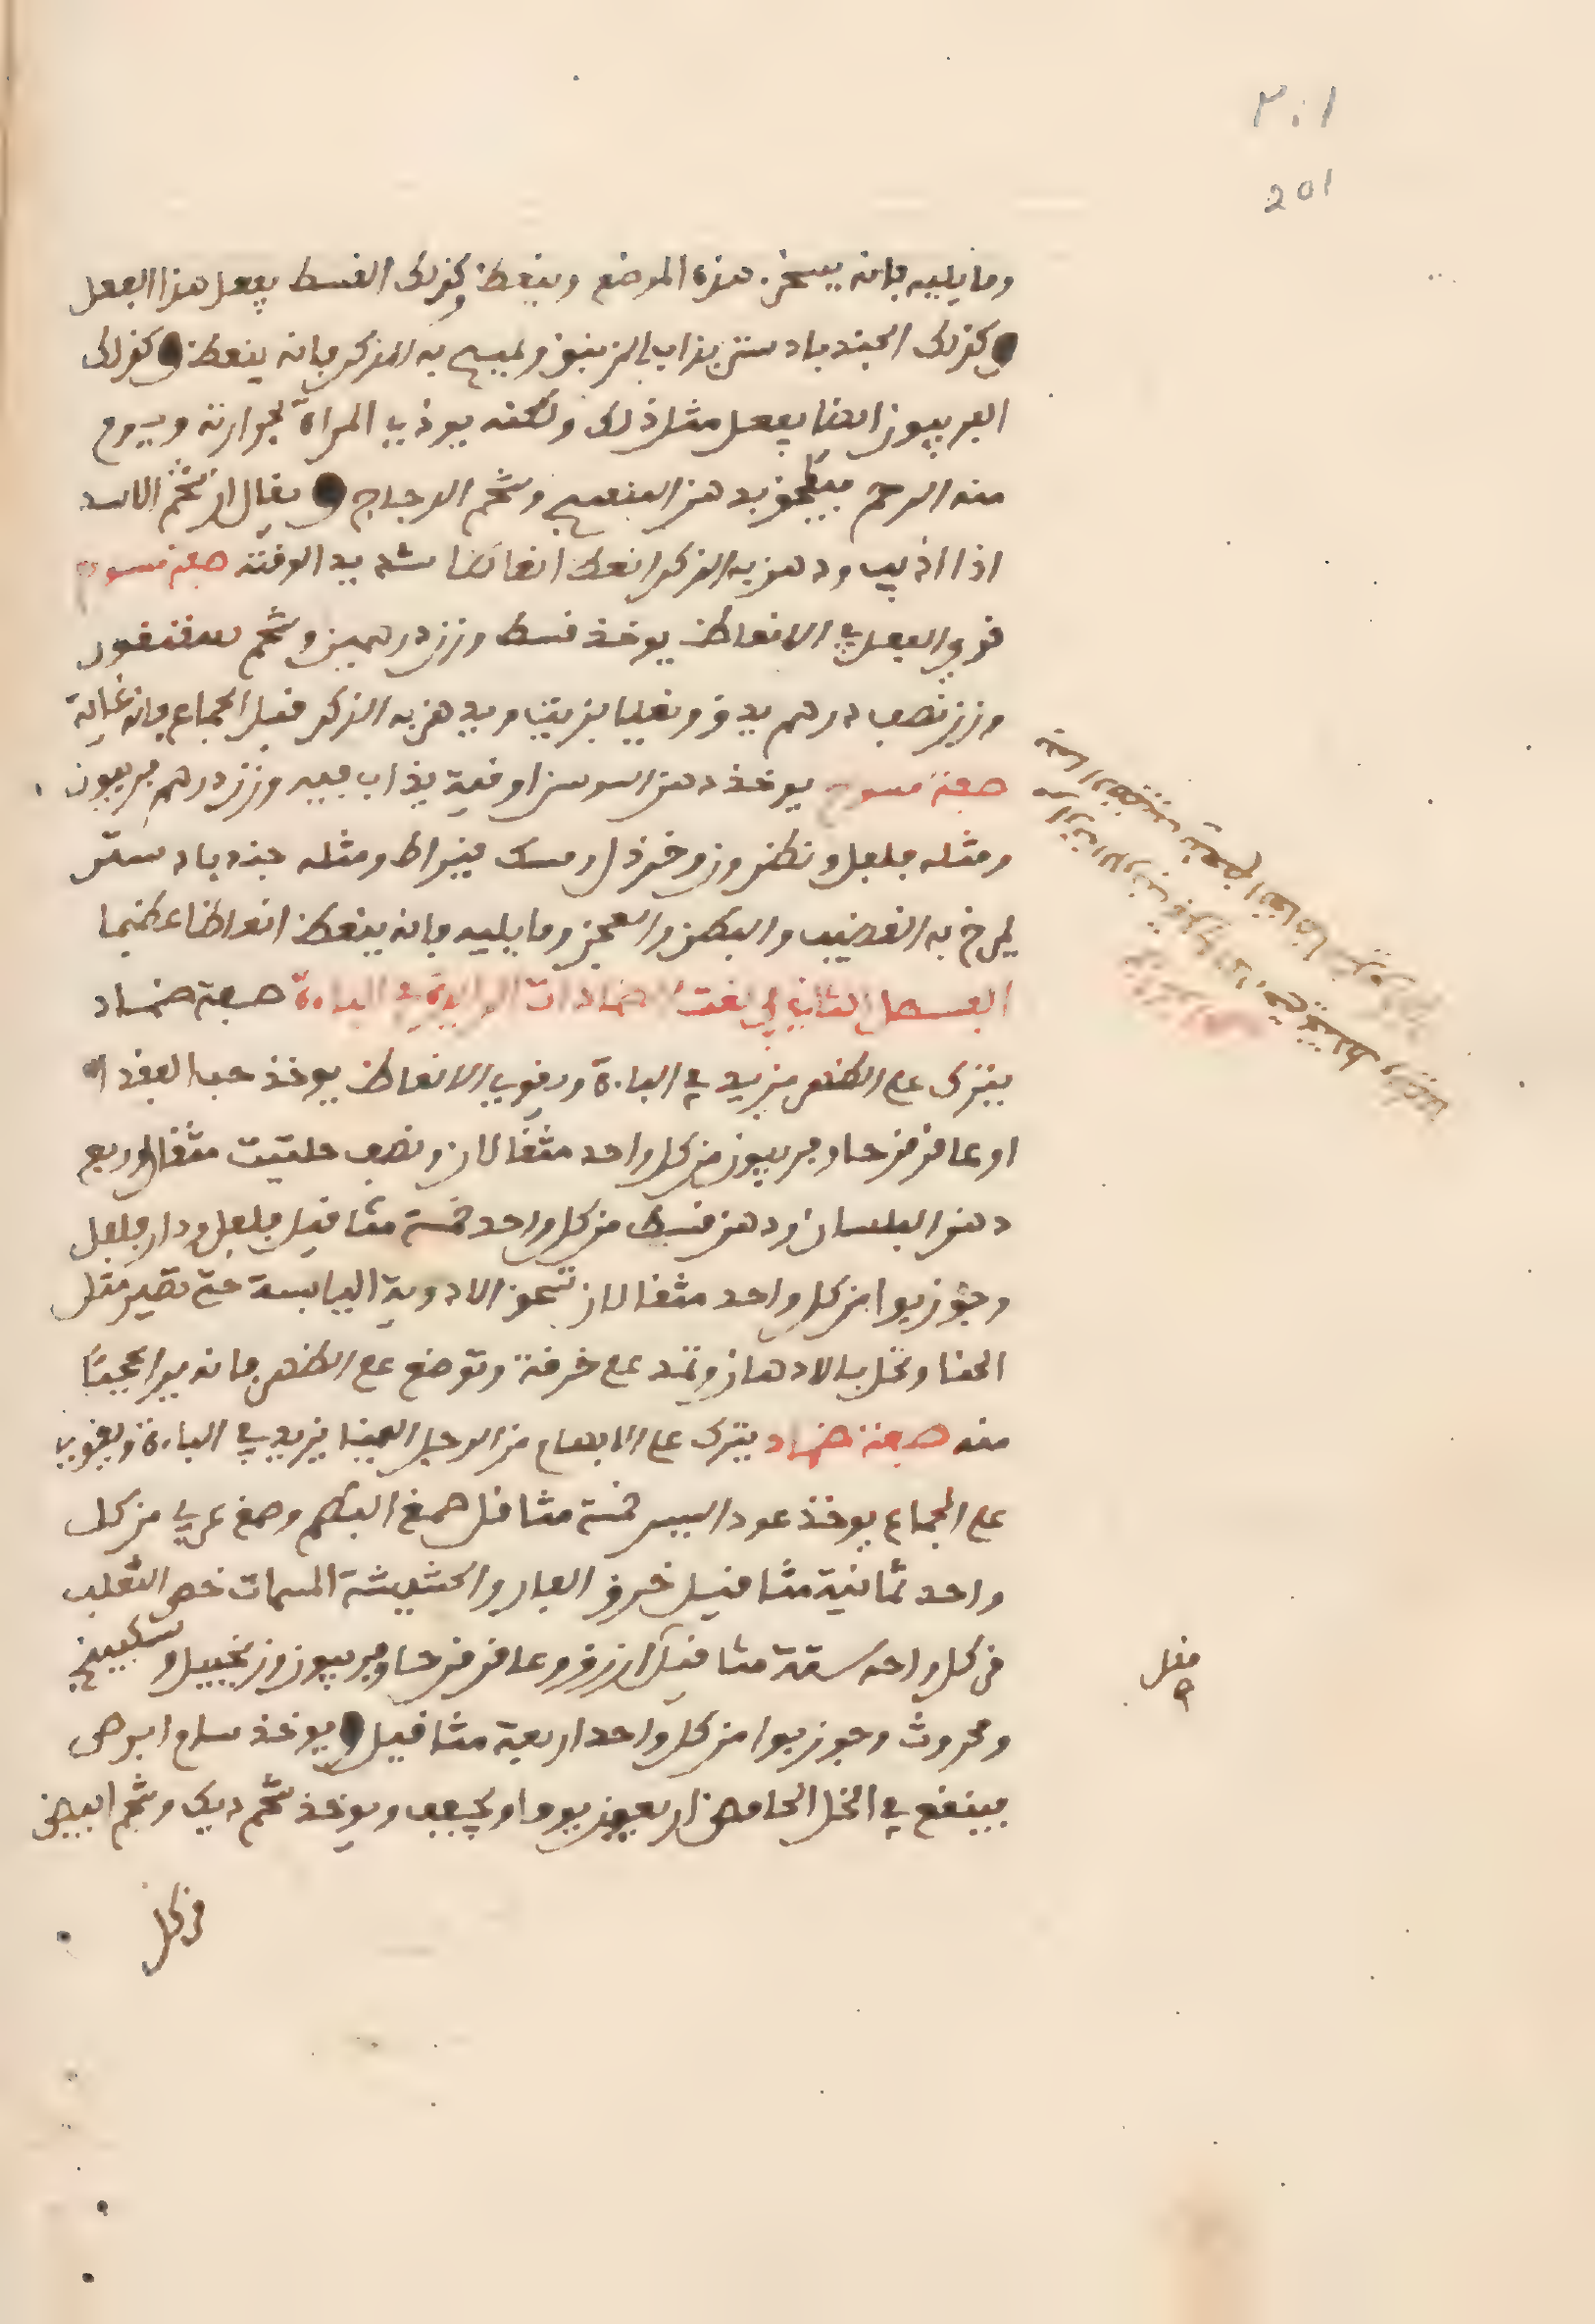 ٢٠١
201
وما يليه فانه يسخن هذه الموضع وينعظ وكذلك القسط يفعل هذا الفعل
وكذلك الجندبادستر يذاب بالزنبق ويمسح به الذكر فانه ينعظ وكذلك
الفربيون ايضا يفعل مثل ذلك ولكنه يوذي المراة لحرارته
منه الرحم بدهن البنفسج وشحم الدجاج ويقال ان شحم الاسد
اذا اذيب ودهن به الذكر انعظ انعاظا شديد الوقته صفة مسوح
قوي الفعل في الانعاظ يوخذ قسط وزن درهمين وشحم سقنقور
وزن نصف درهم يدق ويغليا بزيت ويدهن به الذكر قبل الجماع فانه غاية
صفة مسوح يوخذ دهن السوسن اوقية يذاب فيه وزن درهم فربيون
ومثله فلفل ونطرون وخردل ومسك قيراط ومثله جندبادستر
يمرخ به القضيب والبطن والعجز وما يليه فانه ينعظ انعاظا عظيما
الفصل الثاني في نعت الضمادات الزايدة في الباءة صفة ضماد
يترك على الظهر يزيد في الباءة ويقوي الانعاظ يوخذ حب الفقد
او عاقرقرحا وفربيون من كل واحد مثقالان ونصف حلتيت مثقال وربع
دهن البلسان ودهن قسط من كل واحد خمسة مثاقيل فلفل ودار فلفل
وجوز بوا من كل واحد مثقالان تسحق الادوية اليابسة حتى تصير مثل
الحنا وتحل بالادهان وتمد على خرقة وتوضع على الظهر فانه يرا عجبا
منه صفة ضماد يترك على الابهام من الرجل اليمنا يزيد في الباءة ويقوي
على الجماع يوخذ عود اليسر خمسة مثاقل صمغ البطم وصمغ عربي من كل
واحد ثمانية مثاقيل خرو الفار والحشيشة المسمات خصى الثعلب
من كل واحد ستة مثاقيل ازرق وعاقرقرحا وفربيون وزنجبيل وسكبينج
ومحروث وجوز بوا من كل واحد اربعة مثاقيل ويوخذ سام ابرص
فينقع في الخل الحامض اربعين يوما ويجفف ويوخذ شحم ديك وشحم ابيض
مقل
من كل